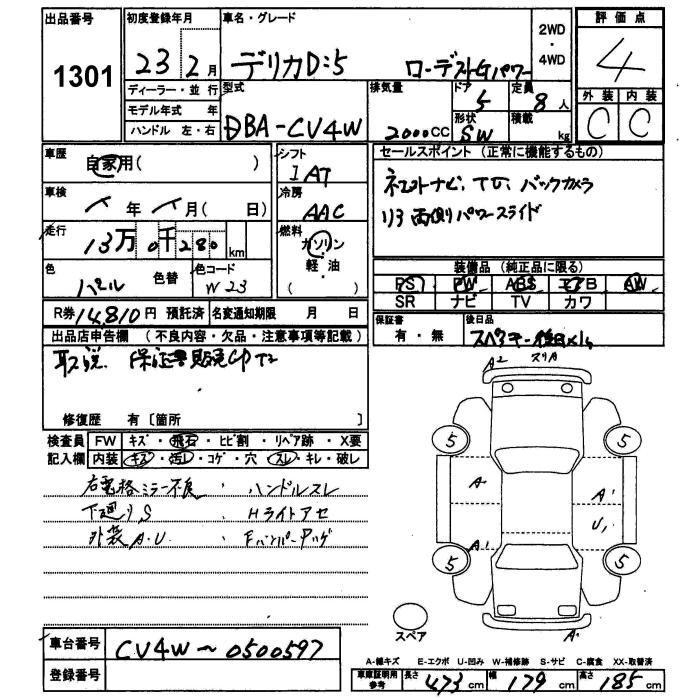 出品番号
1301
初度登録年月
23 2月
ディーラー・並行
モデル年式 年
ハンドル 左・右
車名・グレード
デリカD:5 ローデストGパワー
2WD
・
4WD
評価点
4
外装 内装
C C
型式
DBA-CV4W
排気量
2000CC
ドア
5
形状
SW
定員
8人
積載
kg
車歴
自家用( )
車検
年 月( 日)
走行
13万0千280km
色
パール
色替
色コード
W23
シフト
IAT
冷房
AAC
燃料
ガソリン
軽・油
( )
セールスポイント (正常に機能するもの)
ネットナビ、TV、バックカメラ
リヌ両側パワースライド
装備品 (純正品に限る)
PS PW ABS エアB AW
SR ナビ TV カワ
R券14,810円 預託済 名変通知期限 月 日
保証書
有・無
後日品
スペアキー後日
出品店申告欄 (不良内容・欠品・注意事項等記載)
取説 保証書
修復歴 有〔箇所 〕
検査員 FW キズ・飛石・ヒビ割・リペア跡・X要
記入欄 内装 キズ・汚レ・コゲ・穴・スレ・キレ・破レ
右電格ミラー不良 ハンドルスレ
下廻りS Hライトアセ
外装A.U Fバンパー下ハゲ
A2 スリA
5 5
A A1
U1
A1
5 5
A
スペア
車台番号 CV4W~0500597
登録番号
A-線キズ E-エクボ U-凹み W-補修跡 S-サビ C-腐食 XX-取替済
車庫証明用参考 長さ 473cm 幅 179cm 高さ 185cm